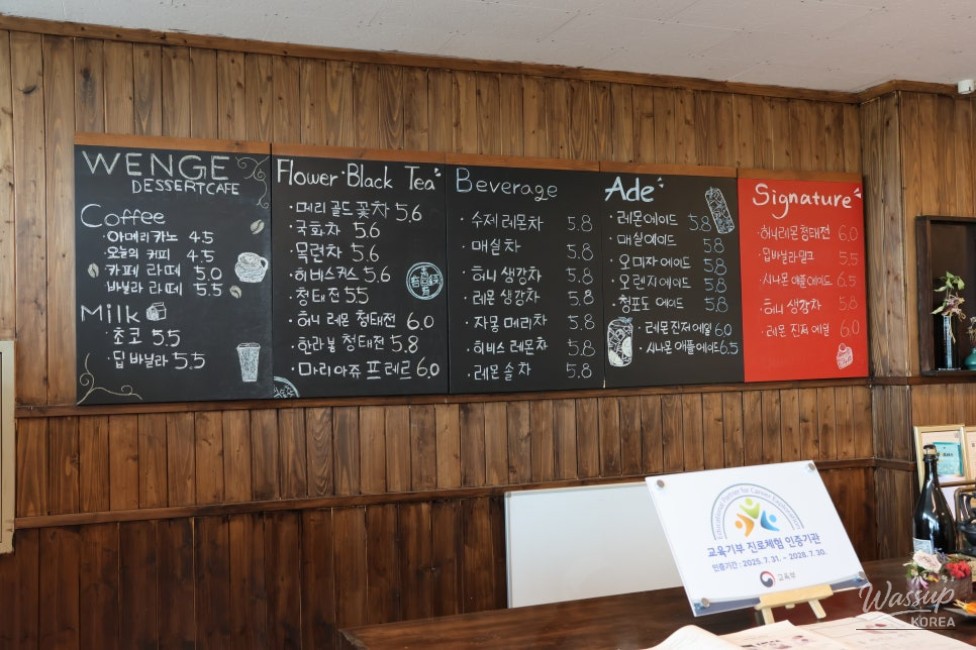 WENGE
DESSERTCAFE
Coffee
·아메리카노 4.5
·오늘의 커피 4.5
·카페 라떼 5.0
바닐라 라떼 5.5
Milk
·초코 5.5
·딥바닐라 5.5
Flower·Black Tea
·메리골드꽃차 5.6
·국화차 5.6
·목련차 5.6
·히비스커스 5.6
·청태전 5.5
·허니 레몬 청태전 6.0
·한라봉 청태전 5.8
·마리아쥬 프레르 6.0
Beverage
·수제 레몬차 5.8
·매실차 5.8
·허니 생강차 5.8
·레몬 생강차 5.8
·자몽 메리차 5.8
·히비스 레몬차 5.8
·레몬 솔차 5.8
Ade
·레몬에이드 5.8
·매실에이드 5.8
·오미자 에이드 5.8
·오렌지에이드 5.8
·청포도 에이드 5.8
·레몬 진저 에일 6.0
·시나몬 애플에이드 6.5
Signature
·허니레몬 청태전 6.0
·딥바닐라밀크 5.5
·시나몬 애플에이드 6.5
·허니 생강차 5.8
·레몬 진저 에일 6.0
교육기부 진로체험 인증기관
인증기간 : 2025. 7. 31. ~ 2028. 7. 30.
교육부
Wassup
KOREA